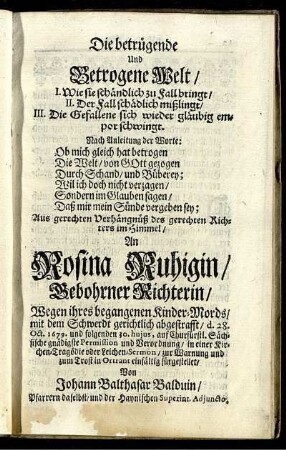 Die betrügende
Und
Betrogene Welt/
I. Wie sie schändlich zu Fall bringt/
II. Der Fall schädlich mißlingt/
III. Die Gefallene sich wieder gläubig em-
por schwingt.
Nach Anleitung der Worte:
Ob mich gleich hat betrogen
Die Welt/ von GOtt gezogen
Durch Schand/ und Büberey;
Wil ich doch nicht verzagen/
Sondern im Glauben sagen/
Daß mir mein Sünde vergeben sey;
Aus gerechten Verhängnüß des gerechten Rich-
ters im Himmel/
An
Rosina Ruhigin/
Gebohrner Richterin/
Wegen ihres begangenen Kinder-Mords/
mit dem Schwerdt gerichtlich abgestrafft/ d. 28.
Oct. 1679. und folgenden 30. hujus, auf Churfürstl. Säch-
sische gnädigste Permission und Verordnung/ in einer Kir-
chen-Tragödie oder Leichen-Sermon/ zur Warnung und
zum Trost in Ortrant einfältig fürgestellet/
Von
Johann Balthasar Balduin/
Pfarrern daselbst/ und der Haynischen Superint. Adjuncto.